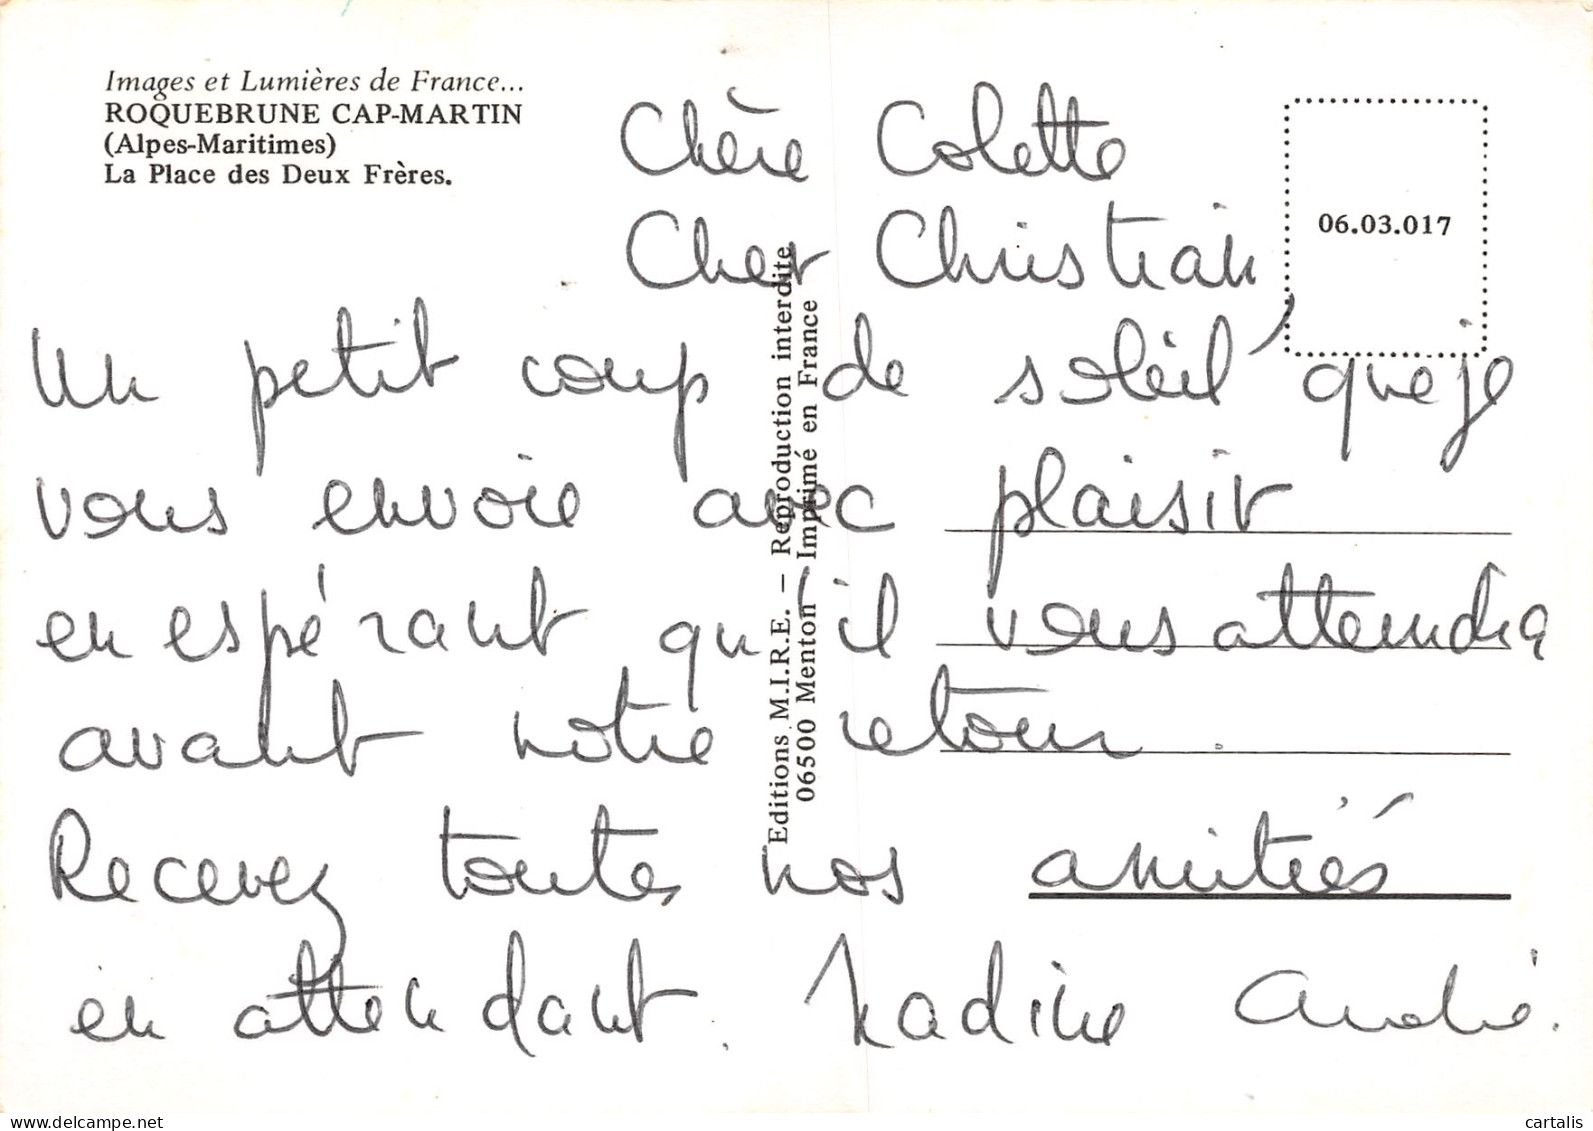 Images et Lumières de France...
ROQUEBRUNE CAP-MARTIN
(Alpes-Maritimes)
La Place des Deux Frères.
06.03.017
Editions M.I.R.E. – Reproduction interdite
06500 Menton Imprimé en France
Chère Colette
Cher Christian
Un petit coup de soleil que je
vous envoie avec plaisir
en espérant qu'il vous attendra
avant notre retour.
Recevez toutes nos amitiés
en attendant. Nadine André.
cartalis
www.delcampe.net